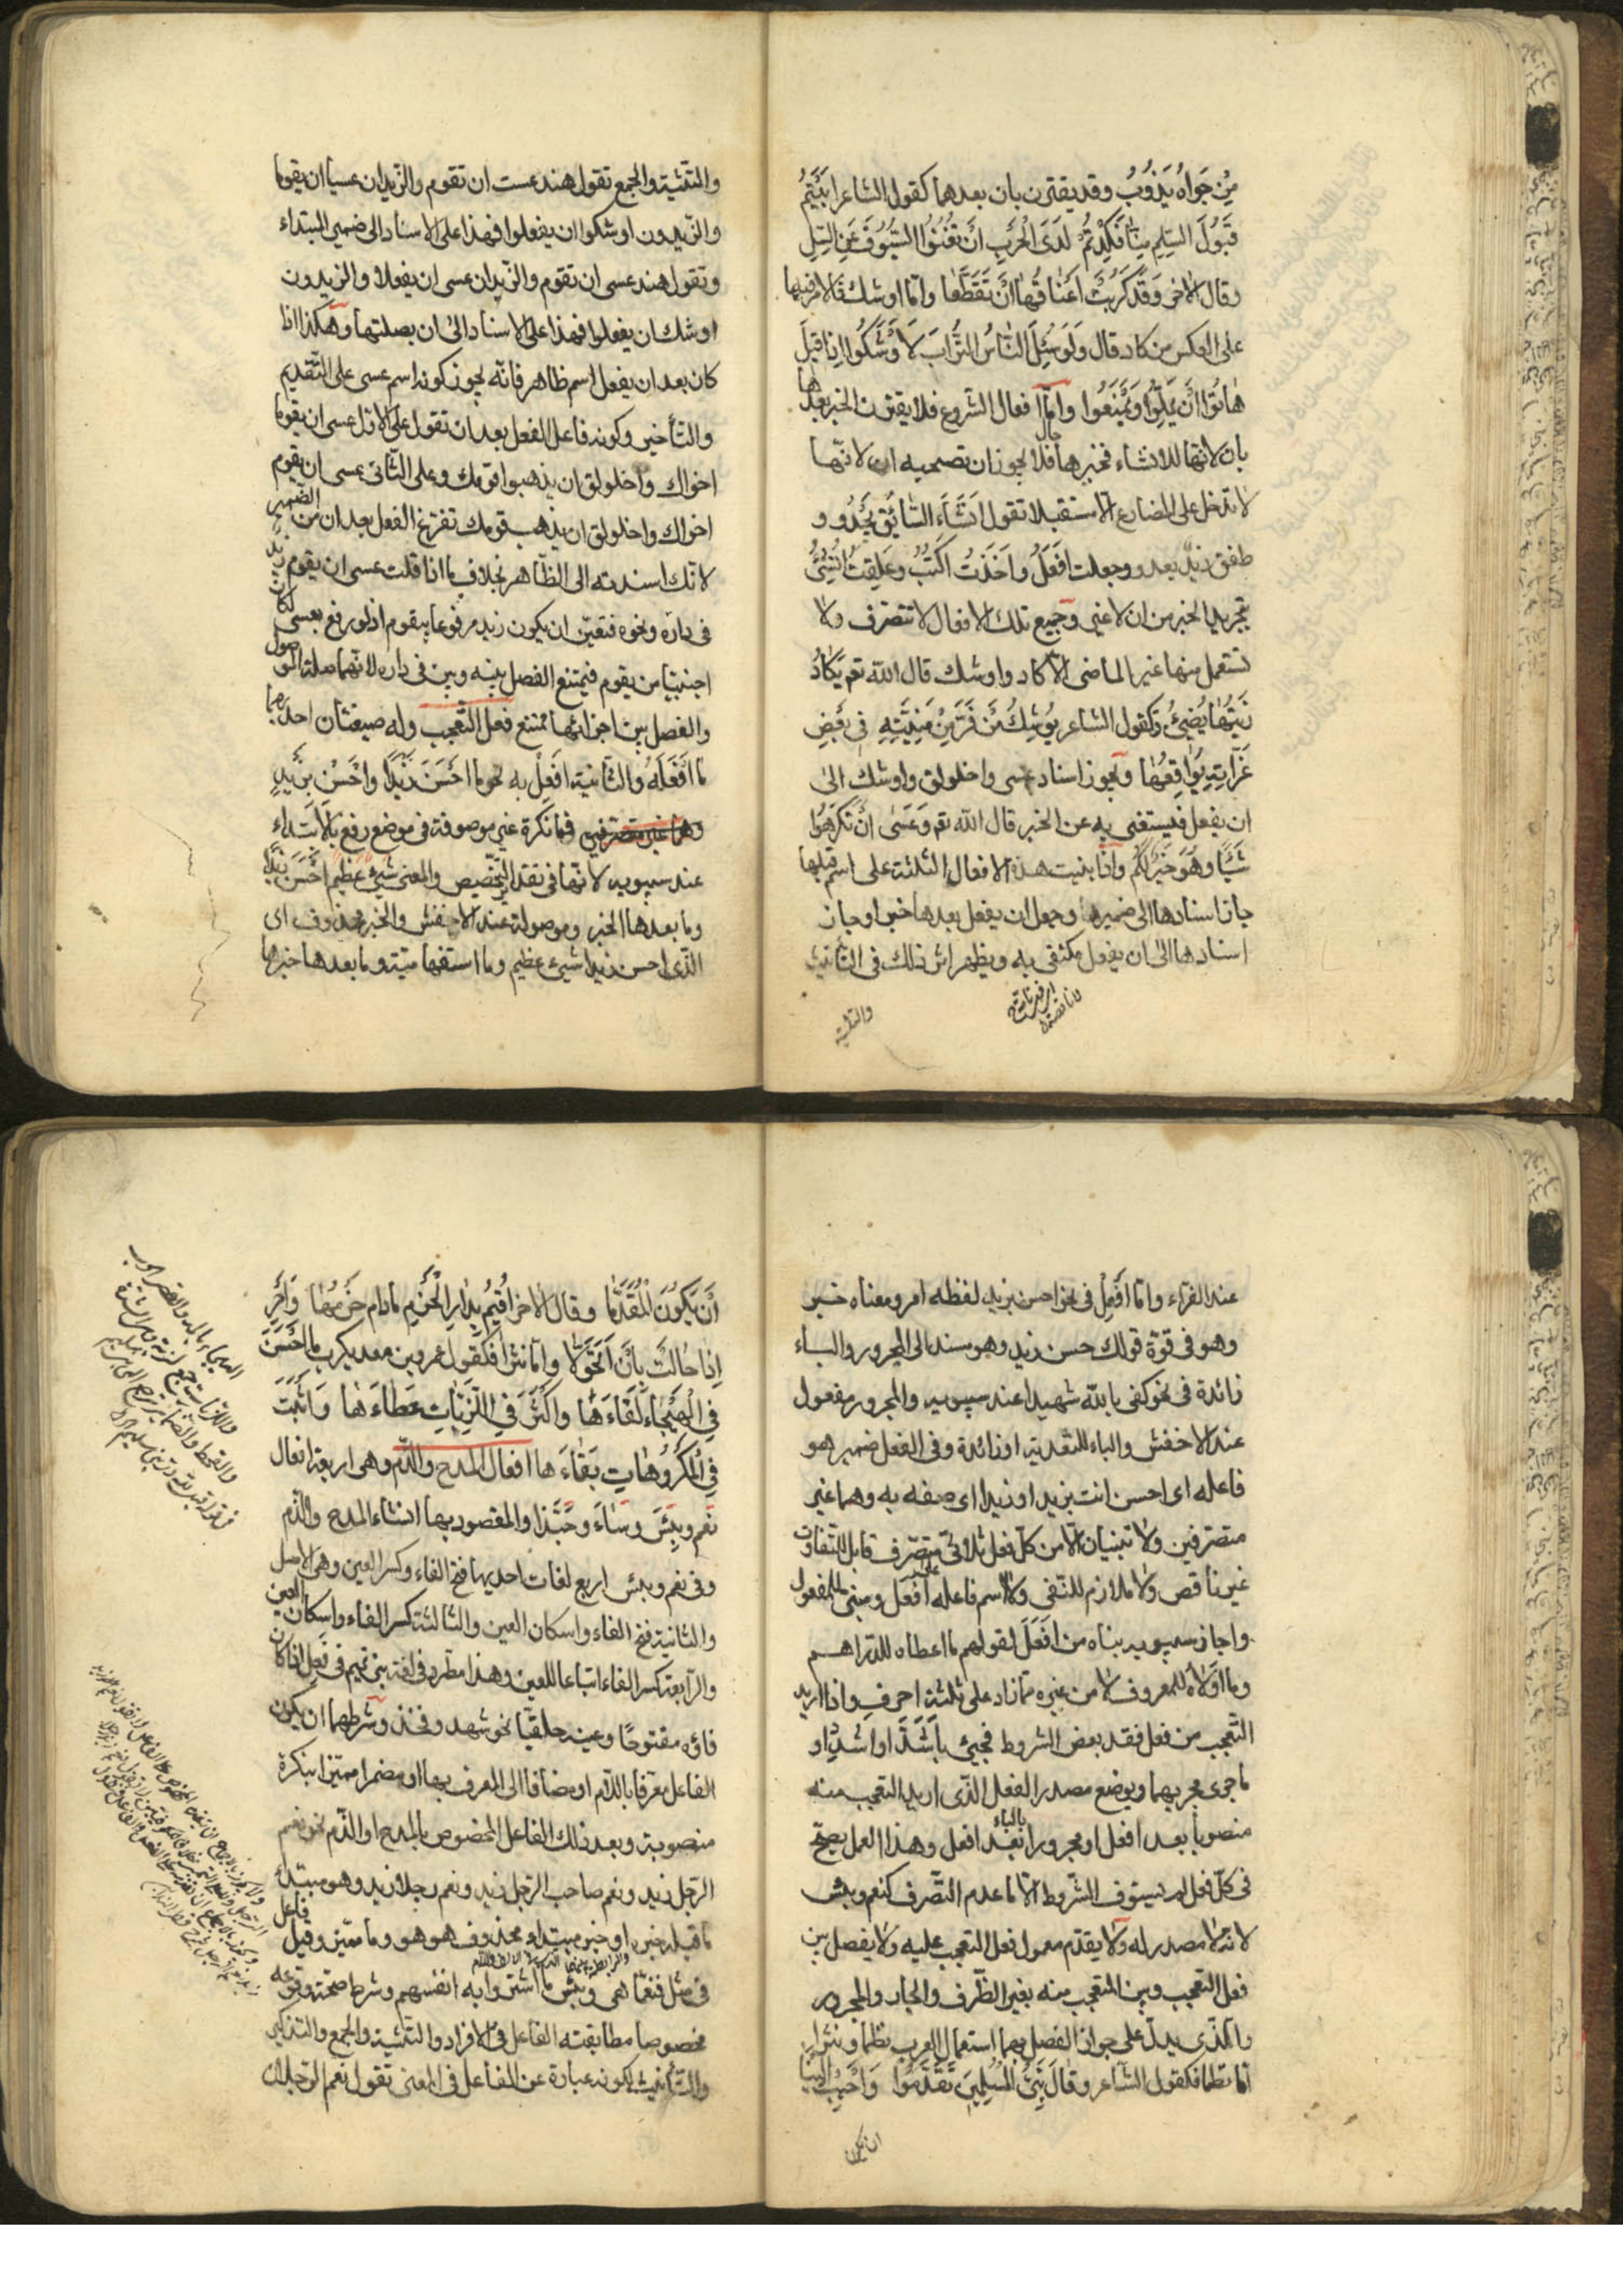 مِنْ جَوَاهُ يَذُوبُ وقد يقترن بان بعدهما كقول الشاعر ابَيْتُمْ
قَبُولَ السِّلِمِ مِنّٰا فَكِدْتُمُ لَدَى الْحَرْبِ اَنْ تُغْنُوُا السُّيُوُفَ عَنِ السِّلِ
وقال الاخر وَقَدْ كَرُبَتْ اَعْنٰاقُهٰا اَنْ تَقَطَّعٰا وامّا اوشك فالامر فيها
على العكس من كاد قال وَلَوْ سُئِلَ النّٰاسُ التُّرابَ لَاَوْشَكُوا اِذٰا قيٖلَ
هٰاتُوا اَنْ يَمَلّوُا وَيَمْنَعُوا وامّا افعال الشروع فلا يقترن الخبر بعدها
بان لانّها للانشاء فخبرها حال فلا يجوز ان تصحبه ان لانّها
لا تدخل على المضارع الّا مستقبلا تقول اَنْشَاَ السّٰائِقُ يَحْدُو و
طفق زيد يعدو وجعلت اَفْعَلُ واَخَذْتُ اَكْتُبُ وعَلِقْتُ اُنْشِئُ
بتجريد الخبر من ان لا غير وجميع تلك الافعال لا تتصرّف ولا
تستعمل منها غير الماضى الّا كاد واوشك قال اللّه تعم يَكٰادُ
زَيْتُهٰا يُضيٖئُ وكقول الشاعر يوُشِكُ مَنْ فَرَّ مِنْ مَنِيَّتِهِ فى بَعْضِ
غِرّاتِهِ يُوٰافِقُهٰا ويجوز اسناد عسى واخلولق واوشك الىٰ
ان يفعل فيستغنى به عن الخبر قال اللّه تعم وَعَسٰى اَنْ تَكْرَهوُا
شَيْئًا وَهُوَ خَيْرٌ لَكُمْ واذا بنيت هذه الافعال الثلثة على اسم قبلها
جاز اسنادها الى ضميره وجعل ان يفعل بعدها خبرا وجاز
اسنادها الىٰ ان يفعل مكتفى به ويظهر اثر ذلك فى التأنيث
والتثنية
والتثنية والجمع تقول هند عست ان تقوم والزّيدان عسيا ان يقوما
والزّيدون اوشكوا ان يفعلوا فهذا على الاسناد الى ضمير المبتداء
وتقول هند عسى ان تقوم والزّيدان عسى ان يفعلا والزّيدون
اوشك ان يفعلوا فهذا على الاسناد الىٰ ان بصلتها وهكذا اذا
كان بعد ان يفعل اسم ظاهر فانّه يجوز كونه اسم عسى على التّقديم
والتّأخير وكونه فاعل الفعل بعد ان تقول على الاوّل عسى ان يقوما
اخواك واخلولق ان يذهبوا قومك وعلى الثّانى عسى ان يقوم
اخواك واخلولق ان يذهب قومك تفرّغ الفعل بعد ان من الضّمير
لانّك اسندته الى الظّاهر بخلاف ما اذا قلت عسى ان يقوم زيد
فى داره ونحوه فتعيّن ان يكون زيد مرفوعا بيقوم اذ لو رفع بعسى لكان
اجنبيّا من يقوم فيمتنع الفصل بينه وبين فى داره لانّهما صلة الموصول
والفصل بين اجزائها ممتنع فعل التّعجّب وله صيغتان احديهما
ما اَفْعَلَهُ والثّانية اَفْعِلْ به نحو ما اَحْسَنَ زَيْدًا واَحْسِنْ بِزَيْدٍ
وهما غير متصرّفين فما نكرة غير موصوفة فى موضع رفع بالابتداء
عند سيبويه لانّها فى تقدير التّخصيص والمعنى شيئ عظيم اَحْسَنَ زَيْدًا
وما بعدها الخبر وموصولة عند الاخفش والخبر محذوف اى
الّذى احسن زيدا شيئ عظيم وما استفهاميّة وما بعدها خبرها
عند الفرّاء وامّا اَفْعِلْ فى نحو احسن بزيد لفظه امر ومعناه خبر
وهو فى قوّة قولك حسن زيد وهو مسند الى المجرور والباء
زائدة فى نحو كفى باللّه شهيدا عند سيبويه والمجرور مفعول
عند الاخفش والباء للتعدية او زائدة وفى الفعل ضمير هو
فاعله اى احسن انت بزيد او زيدا اى صفه به وهما غير
متصرّفين ولا تبنيان الّا من كلّ فعل ثلاثى متصرّف قابل للتّفاوت
غير ناقص ولا ملازم للنّفى ولا اسم فاعله على افعل ومبنى للمفعول
واجاز سيبويه بناه من اَفْعَلَ لقولهم ما اعطاه للدّراهم
وما اَوْلاٰهُ للمعروف لا من غيره ممّا زاد على ثلثة احرف واذا اريد
التّعجّب من فعل فقد بعض الشروط فجيئ باَشَدَّ او اَشْدِدْ او
ما جرى مجريهما ويوضع مصدر الفعل الّذى اريد التعجب منه
منصوبا بعد افعل او مجرورا بالباء بعد افعل وهذا العمل يصحّ
فى كلّ فعل لم يستوف الشّروط الّا ما عدم التّصرف كنعم وبئس
لانه لا مصدر له ولا يقدّم معمول فعل التعجب عليه ولا يفصل بين
فعل التعجب وبين المتعجب منه بغير الظّرف والجار والمجرور
والّذى يدلّ على جواز الفصل بهما استعمال العرب نظما ونثرا
امّا نظما فكقول الشّاعر وقٰالَ نَبِىُّ الْمُسْلِميٖنَ تَقَدَّمُوا وَاَحْبِبْ اِلَيْنٰا
ان يكون
اَنْ يَكُونَ الْمُقَدَّمٰا وقال الاخر اُقيٖمُ بِدٰارِ الْحَزْمِ مٰا دام حَزْمُهٰا وَاَحْرِ
اِذٰا حٰالَتْ بِاَنْ اَتَحَوَّلاٰ وامّا نثرا فكقول عمرو بن معديكرب ما اَحْسَنَ
فِى الْهَيْجٰاءِ لِقٰاءَهٰا وَاَكْثَرَ فِى اللَّزِبٰاتِ عَطٰاءَهٰا وَاَثْبَتَ
فِى الْمَكْرُوُهٰاتِ بَقٰاءَهٰا افعال المدح والذّم وهى اربعة افعال
نِعْمَ وبِئْسَ وسٰاءَ وحَبَّذا والمقصود بها انشاء المدح والذّم
وفى نعم وبئس اربع لغات احديها فتح الفاء وكسر العين وهى الاصل
والثانية فتح الفاء واسكان العين والثالثة كسر الفاء واسكان العين
والرّابعة كسر الفاء اتباعا للعين وهذا مطّرد فى لغة بنى تميم فى فَعِل اذا كان
فاؤه مفتوحًا وعينه حلقيّا نحو شهد وفخذ وشرطهما ان يكون
الفاعل معرّفا باللّام او مضافا الى المعرف بها او مضمرا مميّزا بنكرة
منصوبة وبعد ذلك الفاعل المخصوص بالمدح او الذّم نحو نعم
الرّجل زيد ونعم صاحب الرّجل زيد ونعم رجلا زيد وهو مبتداء
ما قبله خبره او خبر مبتداء محذوف هو هو وما مميّز وقيل فاعل
فى مثل فنعمّا هى وبئس ما اشتروا به انفسهم وشرط صحّة وقوعه
مخصوصا مطابقته الفاعل فى الافراد والتّثنية والجمع والتذكير
والتّأنيث لكونه عبارة عن الفاعل فى المعنى تقول نعم الرّجلان